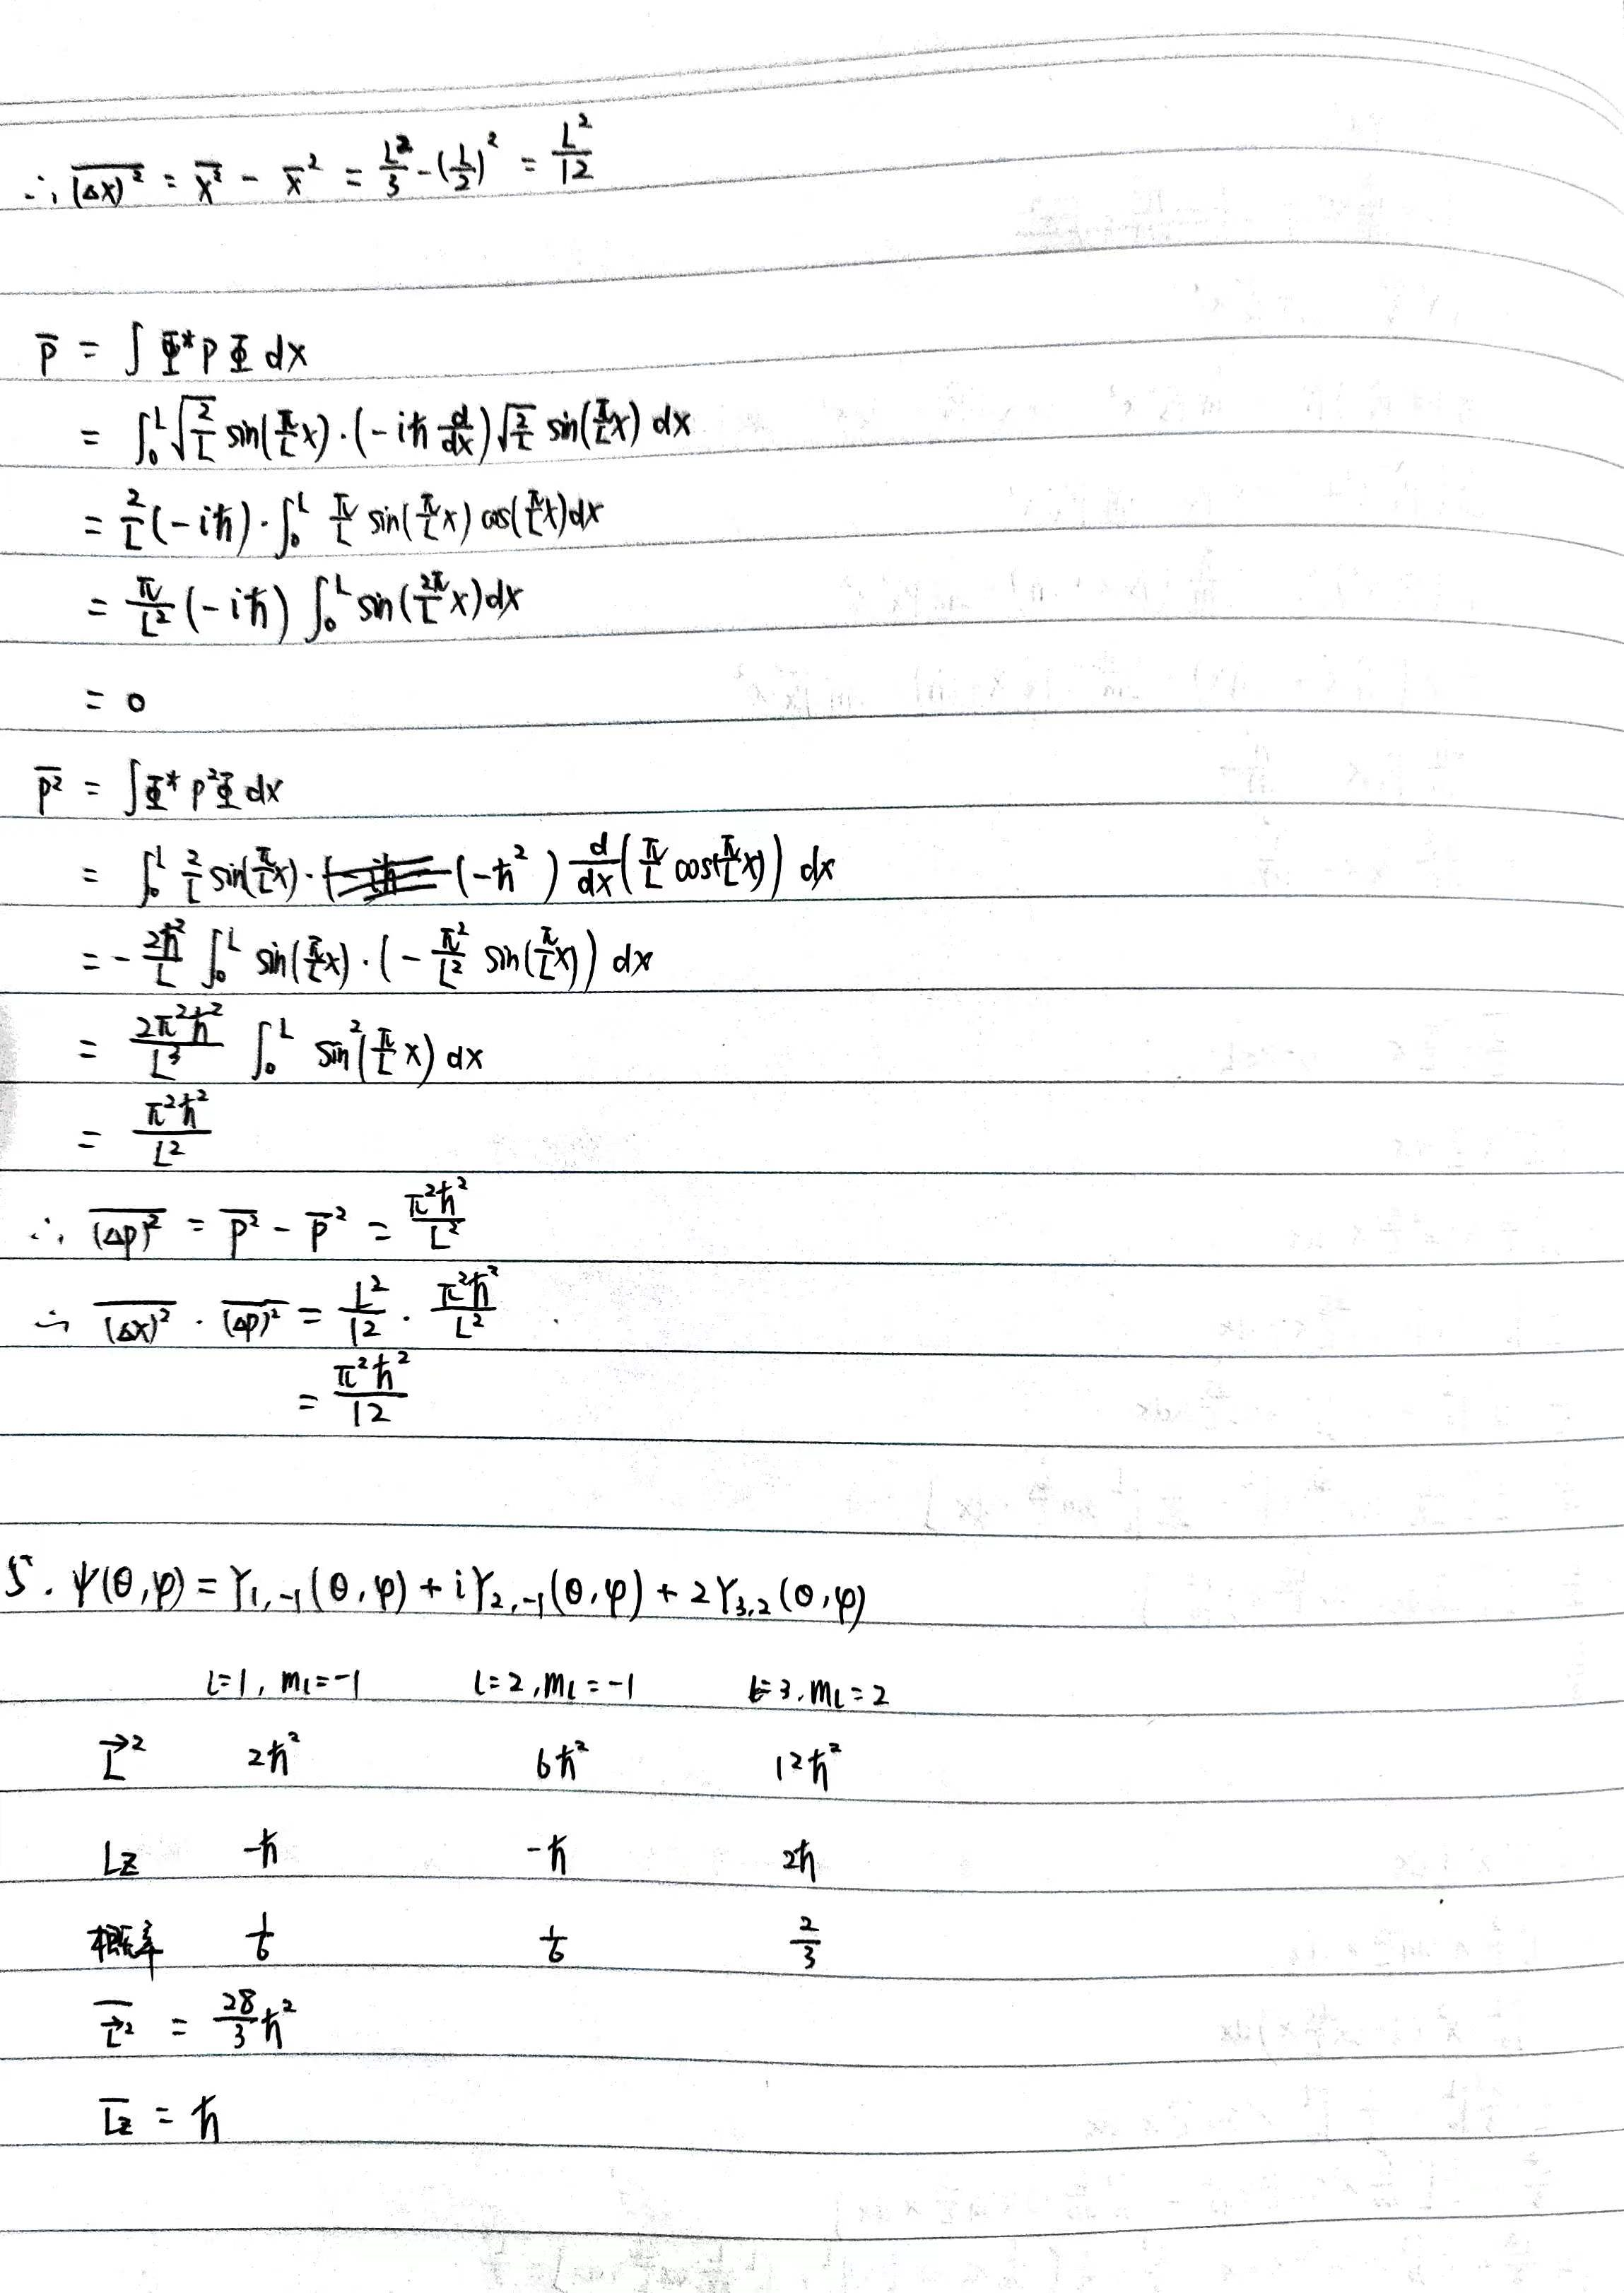 ∴ \overline{(Δx)^2} = \overline{x^2} - \overline{x}^2 = \frac{L^2}{3} - (\frac{L}{2})^2 = \frac{L^2}{12}
\overline{p} = ∫ Φ* p Φ dx
= ∫_0^L \sqrt{\frac{2}{L}} sin(\frac{π}{L}x)·(-iħ \frac{d}{dx}) \sqrt{\frac{2}{L}} sin(\frac{π}{L}x) dx
= \frac{2}{L}(-iħ)·∫_0^L \frac{π}{L} sin(\frac{π}{L}x) cos(\frac{π}{L}x)dx
= \frac{π}{L^2}(-iħ) ∫_0^L sin(\frac{2π}{L}x)dx
= 0
\overline{p^2} = ∫Φ* p^2 Φ dx
= ∫_0^L \frac{2}{L} sin(\frac{π}{L}x)·(-ħ^2) \frac{d}{dx}(\frac{π}{L} cos(\frac{π}{L}x)) dx
= -\frac{2ħ^2}{L} ∫_0^L sin(\frac{π}{L}x)·(-\frac{π^2}{L^2} sin(\frac{π}{L}x)) dx
= \frac{2π^2ħ^2}{L^3} ∫_0^L sin^2(\frac{π}{L}x) dx
= \frac{π^2ħ^2}{L^2}
∴ \overline{(Δp)^2} = \overline{p^2} - \overline{p}^2 = \frac{π^2ħ^2}{L^2}
∴ \overline{(Δx)^2}·\overline{(Δp)^2} = \frac{L^2}{12}·\frac{π^2ħ^2}{L^2}
= \frac{π^2ħ^2}{12}
5. Ψ(θ,φ) = Y_{1,-1}(θ,φ) + iY_{2,-1}(θ,φ) + 2Y_{3,2}(θ,φ)
l=1, m_l=-1 l=2, m_l=-1 l=3, m_l=2
\vec{L}^2 2ħ^2 6ħ^2 12ħ^2
Lz -ħ -ħ 2ħ
概率 \frac{1}{6} \frac{1}{6} \frac{2}{3}
\overline{\vec{L}^2} = \frac{28}{3}ħ^2
\overline{Lz} = ħ